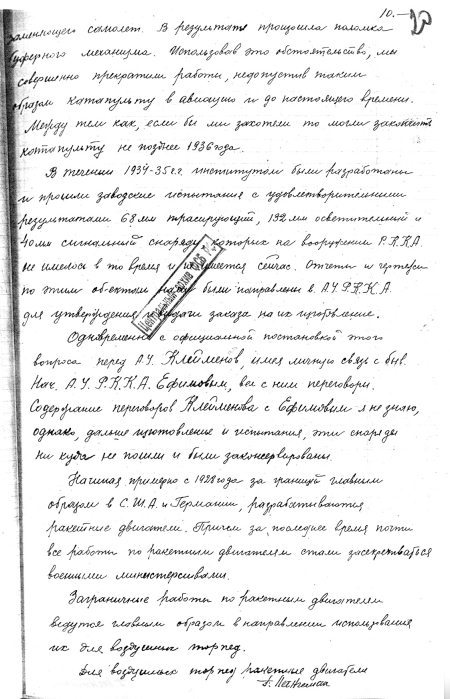 10.
заменяющего самолет. В результате произошла поломка
буферного механизма. Использовав это обстоятельство, мы
совершенно прекратили работы, недопустив таким
образом катапульту в авиацию и до настоящего времени.
Между тем как, если бы мы захотели то могли закончить
катапульту не позднее 1936 года.
В течении 1934-35 г.г. институтом были разработаны
и прошли заводские испытания с удовлетворительными
результатами 68 мм трасирующий, 132 мм осветительный и
40 мм сигнальный снаряды которых на вооружении Р.К.К.А.
не имелось в то время и не имеется сейчас. Отчеты и чертежи
по этим об'ектам были направлены в А.У.Р.К.К.А
для утверждения и выдачи заказа на их изготовление.
Центральный архив ФСБ
Одновременно с официальной постановкой этого
вопроса перед А.У. Клейменов, имея личную связь с быв.
Нач. А.У.Р.К.К.А. Ефимовым, вел с ним переговоры.
Содержание переговоров Клейменова с Ефимовым я не знаю,
однако, дальше изготовление и испытания, эти снаряды
ни куда не пошли и были законсервированы.
Начиная примерно с 1928 года за границей главным
образом в С.Ш.А. и Германии, разрабатываются
ракетные двигатели. Причем за последнее время почти
все работы по ракетным двигателям стали засекречиваться
военными министерствами.
Заграничные работы по ракетным двигателям
ведутся главным образом в направлении использования
их для воздушных торпед.
Для воздушных торпед ракетные двигатели
Г. Лангемак